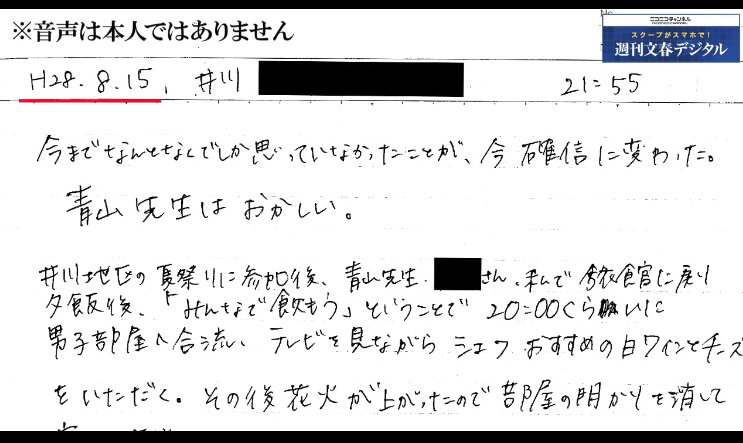 ※音声は本人ではありません
ニコニコチャンネル
スクープがスマホで!
週刊文春デジタル
H28.8.15, 井川 21:55
今までなんとなくでしか思っていなかったことが、今確信に変わった。
青山先生はおかしい。
井川地区の夏祭りに参加後、青山先生、さん、私んで 食官に戻り
夕飯後、「みんなで飲もう」ということで 20:00くらいに
男子部屋へ合流し、テレビを見ながら シェフおすすめの白ワインとチーズ
をいただく。その後花火が上がったので部屋の明かりを消して